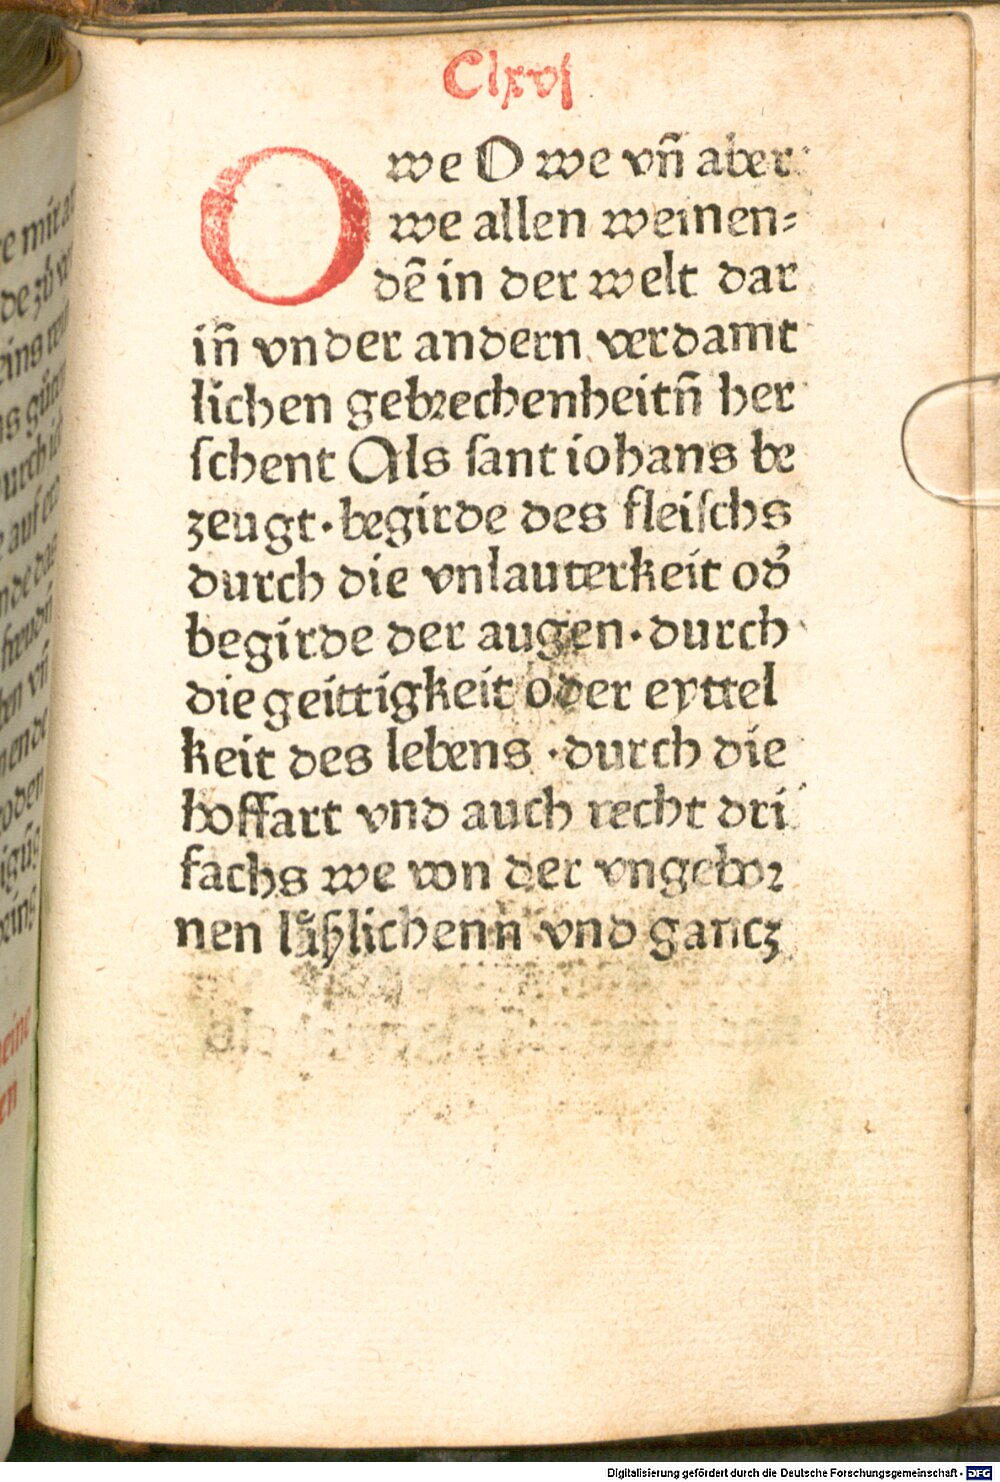 Clxvj
O we O we vn̄ aber
we allen weinen⸗
dē in der welt dar
in̄ vnder andern verdamt
lichen gebꝛechenheitn̄ her
ſchent Als ſant iohans be
zeugt · begirde des fleiſchs
durch die vnlauterkeit od̕
begirde der augen · durch
die geittigkeit oder eyttel
keit des lebens · durch die
hoffart vnd auch recht dri
fachs we von der vngeboꝛ
nen vnd gancz
Digitalisierung gefördert durch die Deutsche Forschungsgemeinschaft - DFG